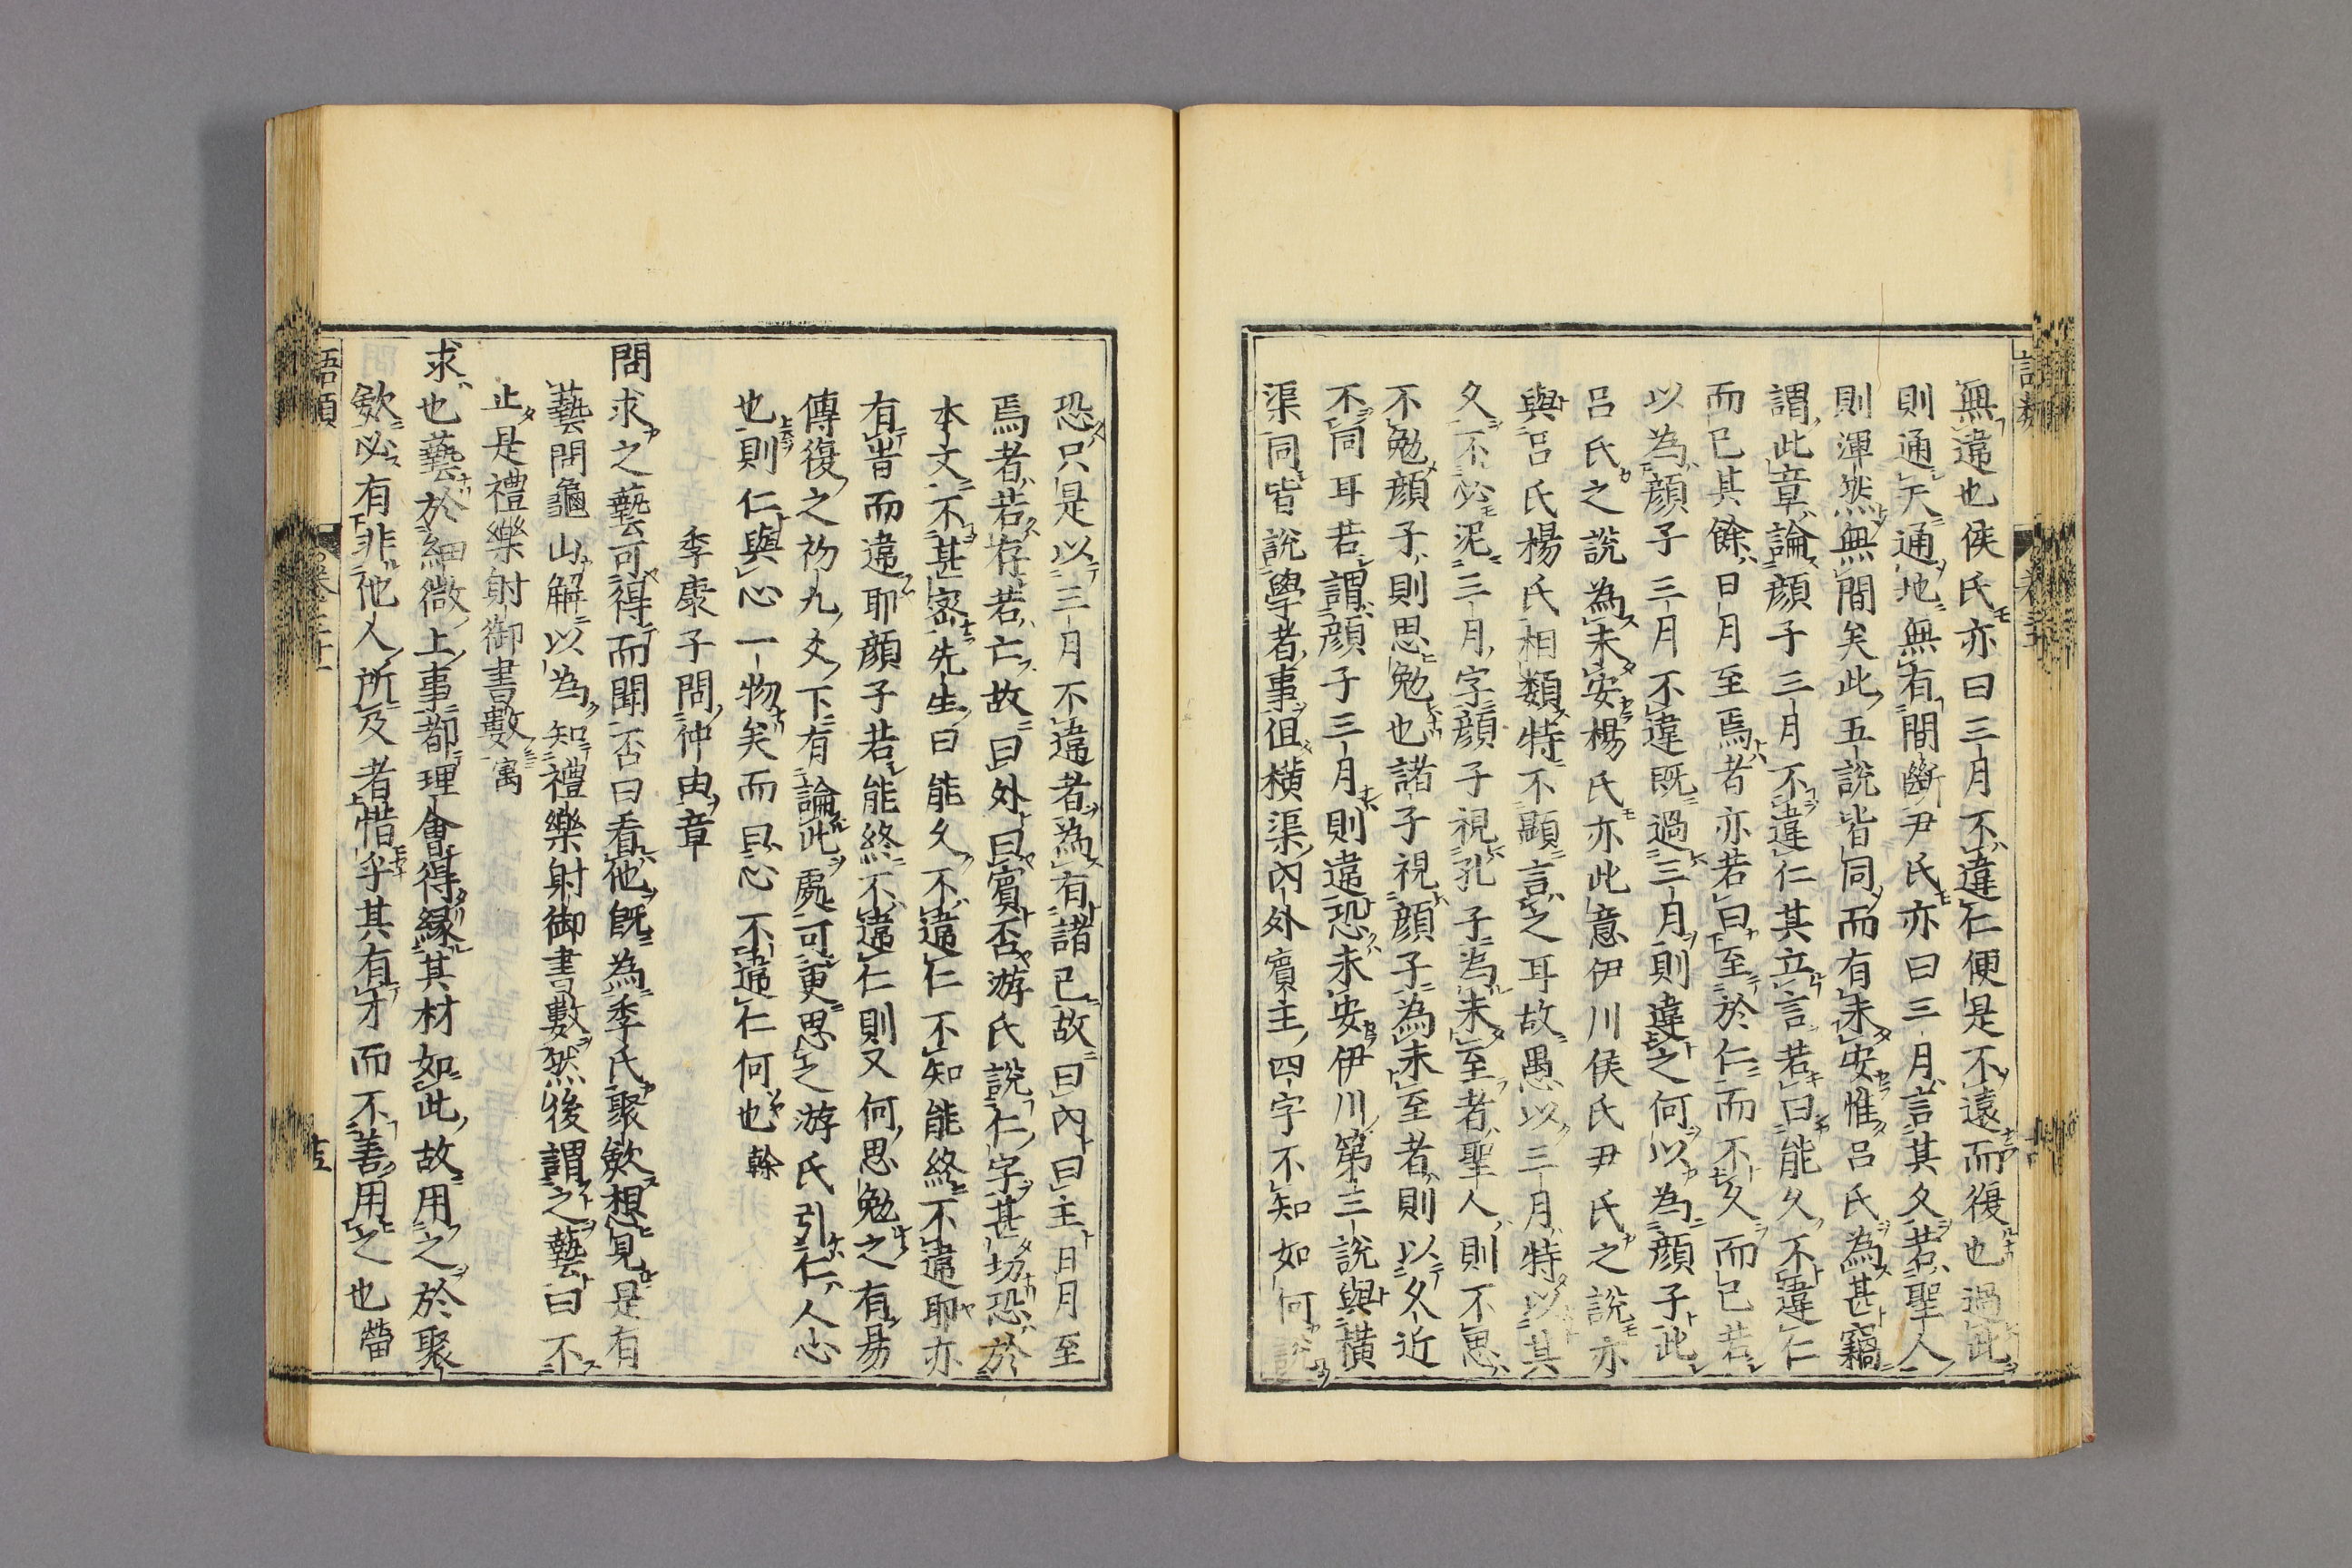 無違也侯氏亦曰三月不違仁便是不遠而復也過此
則通天通地無有間斷尹氏亦曰三月言其久若聖人
則渾然無間矣此五說皆同而有未安惟呂氏為甚竊
謂此章論顏子三月不違仁其立言若曰能久不違仁
而已其餘日月至焉者亦若曰至於仁而不久而已若
以為顏子三月不違既過三月則違之何以為顏子此
呂氏之說為未安楊氏亦此意伊川侯氏尹氏之說亦
與呂氏楊氏相類特不顯言之耳故愚以三月特以其
久不必泥三月字顏子視孔子為未至者聖人則不思
不勉顏子則思勉也諸子視顏子為未至者則以久近
不同耳若謂顏子三月則違恐未安伊川第三說與橫
渠同皆說學者事但橫渠內外賓主四字不知如何說
恐只是以三月不違者為有諸己故曰內曰主日月至
焉者若存若亡故曰外曰賓否游氏說仁字甚切恐於
本文不甚密先生曰能久不違仁不知能終不違耶亦
有時而違耶顏子若能終不違仁則又何思勉之有易
傳復之初九爻下有論此處可更思之游氏引仁人心
也則仁與心一物矣而曰心不違仁何也榦
季康子問仲由章
問求之藝可得而聞否曰看他既為季氏聚歛想見是有
藝問龜山解以為知禮樂射御書數然後謂之藝曰不
止是禮樂射御書數㝢
求也藝於細微上事都理會得緣其材如此故用之於聚
歛必有非他人所及者惜乎其有才而不善用之也㽦
語類
卷三十一